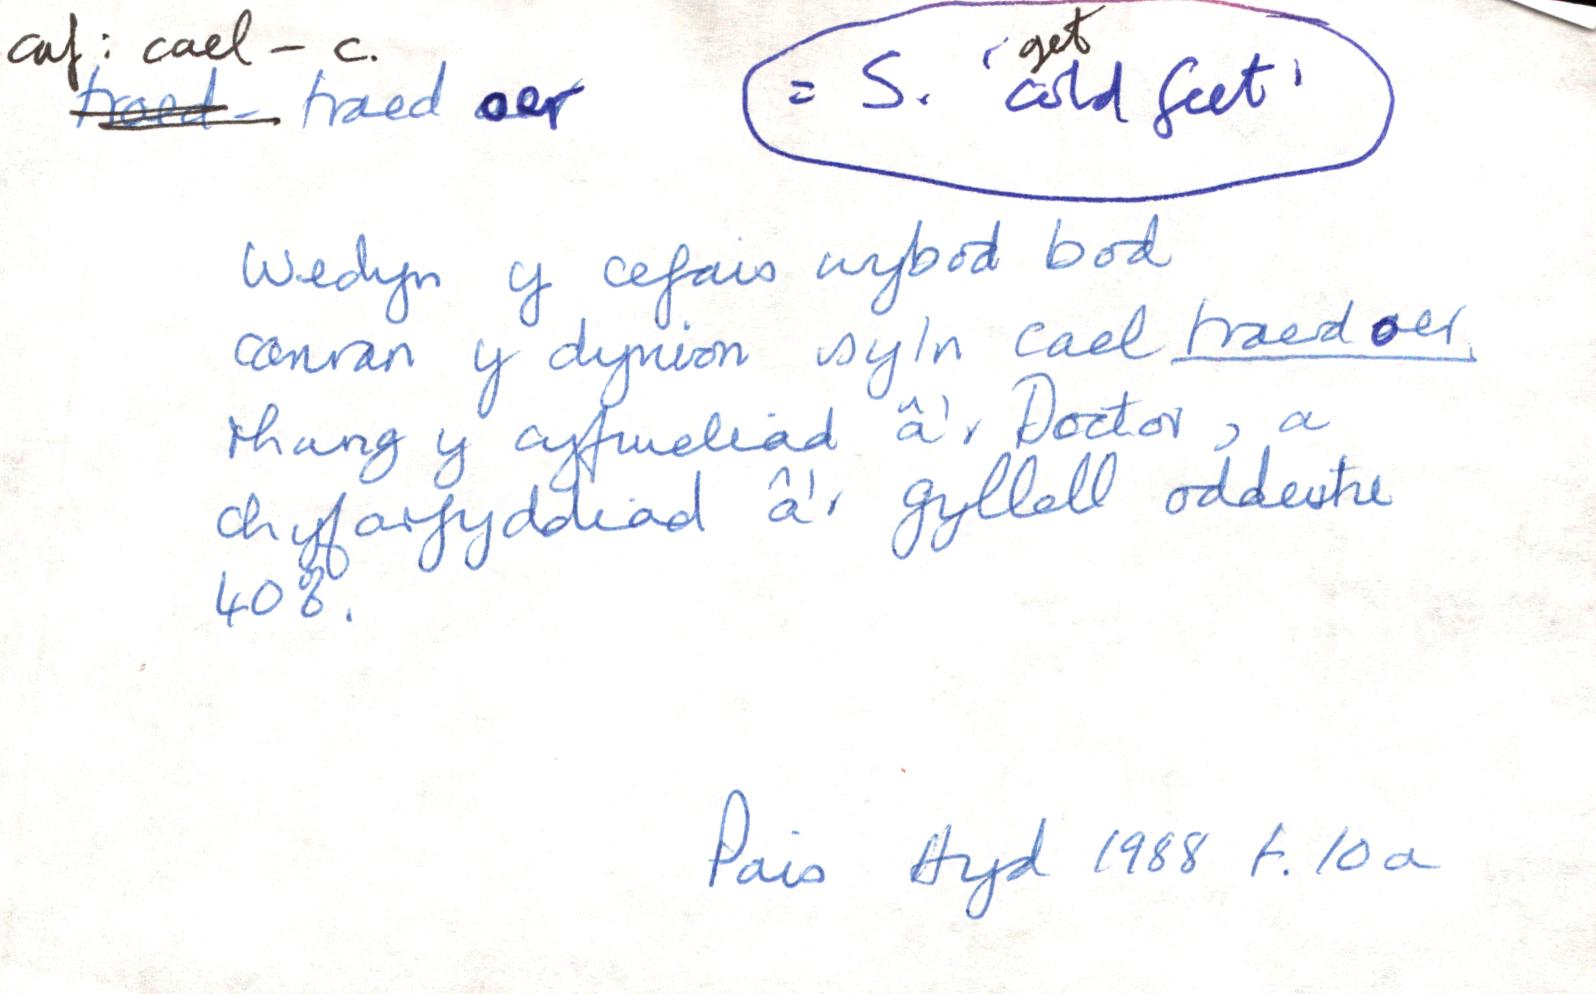 caf: cael – c.
traed – traed oer
= S. 'get cold feet'
Wedyn y cefais wybod bod
canran y dynion sy'n cael traed oer
rhwng y cyfweliad â'r Doctor, a
chyfarfyddiad â'r gyllell oddeutu
40%.
Pais Hyd 1988 t. 10a